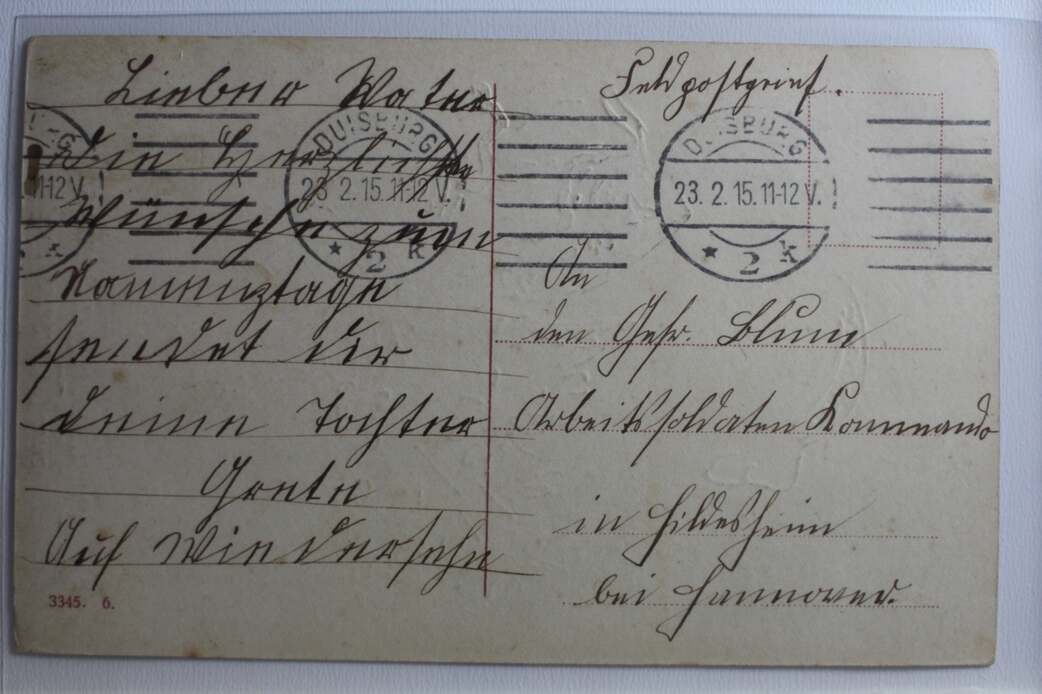 Lieber Vater
Die Herzlichste
Wünsche zum
Namenztage
sendet dir
deine Tochter
Grete
Auf Wiedersehn
3345. 6.
Feldpostbrief.
DUISBURG
23. 2. 15. 11-12 V.
* 2 k
DUISBURG
23. 2. 15. 11-12 V.
* 2 k
11-12 V.
k
An
den Gefr. Blum
Arbeitssoldaten Kommando
in Hildesheim
bei Hannover.